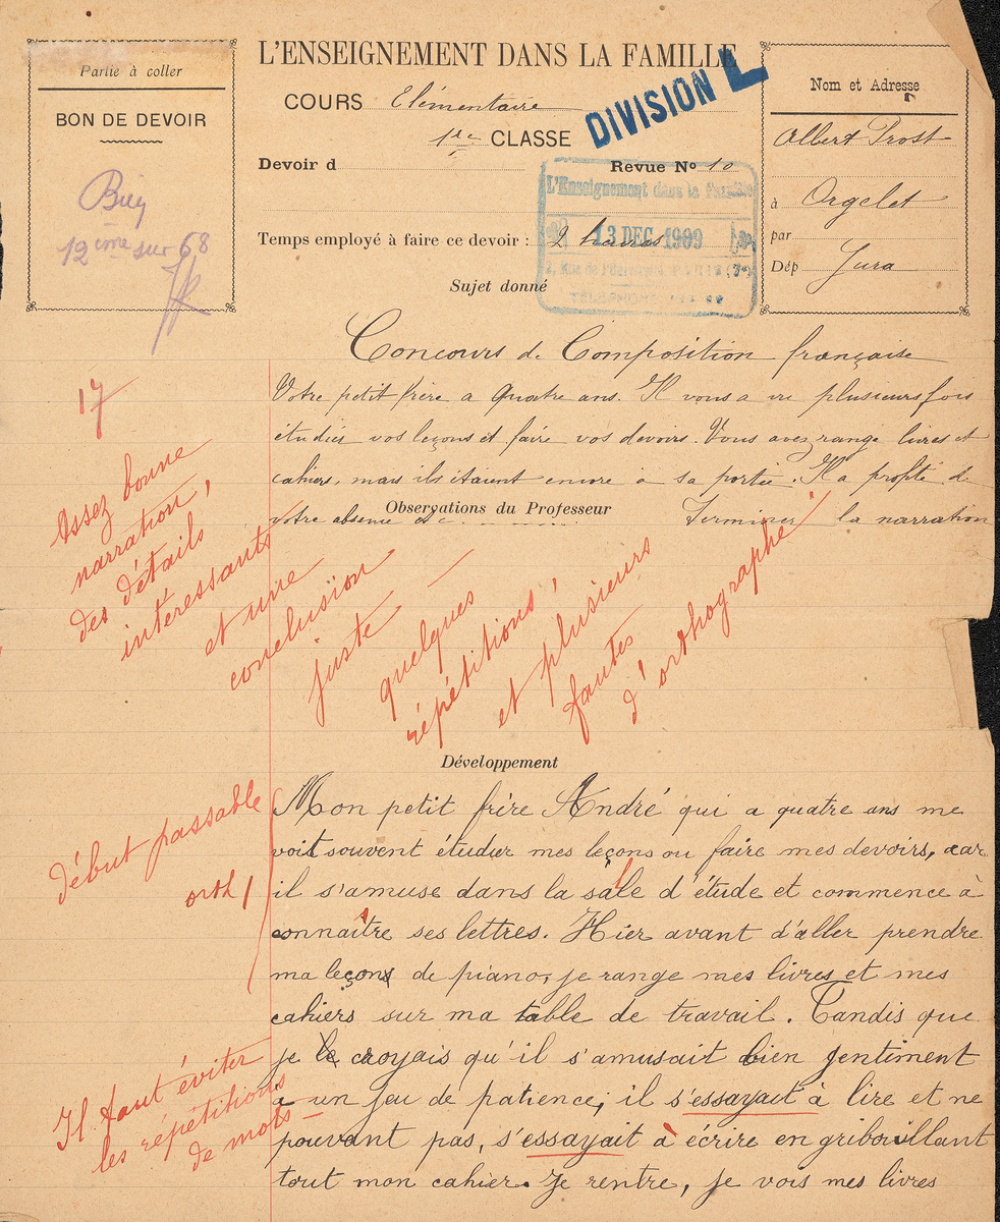 Partie à coller
BON DE DEVOIR
Bien
12ème sur 68
L'ENSEIGNEMENT DANS LA FAMILLE
COURS Elémentaire
1re CLASSE
DIVISION L
Devoir d
Revue No 10
L'Enseignement dans la Famille
13 DEC 1909
Temps employé à faire ce devoir : 2 heures
TÉLÉPHONE
Nom et Adresse
Albert Prost
à Orgelet
par
Dép Jura
Sujet donné
Concours de Composition française
Votre petit frère a quatre ans. Il vous a vu plusieurs fois
étudier vos leçons et faire vos devoirs. Vous avez rangé livres et
cahiers, mais ils étaient encore à sa portée. Il a profité de
votre absence etc Terminer la narration
Observations du Professeur
17
Assez bonne
narration,
des détails
intéressants
et une
conclusion
juste —
quelques
répétitions
et plusieurs
fautes
d'orthographe
Développement
début passable
orth
Mon petit frère André qui a quatre ans me
voit souvent étudier mes leçons ou faire mes devoirs, car
il s'amuse dans la salle d'étude et commence à
connaître ses lettres. Hier avant d'aller prendre
ma leçon de piano, je range mes livres et mes
cahiers sur ma table de travail. Tandis que
je le croyais qu'il s'amusait bien gentiment
à un jeu de patience, il s'essayait à lire et ne
pouvant pas, s'essayait à écrire en gribouillant
tout mon cahier. Je rentre, je vois mes livres
Il faut éviter
les répétitions
de mots —